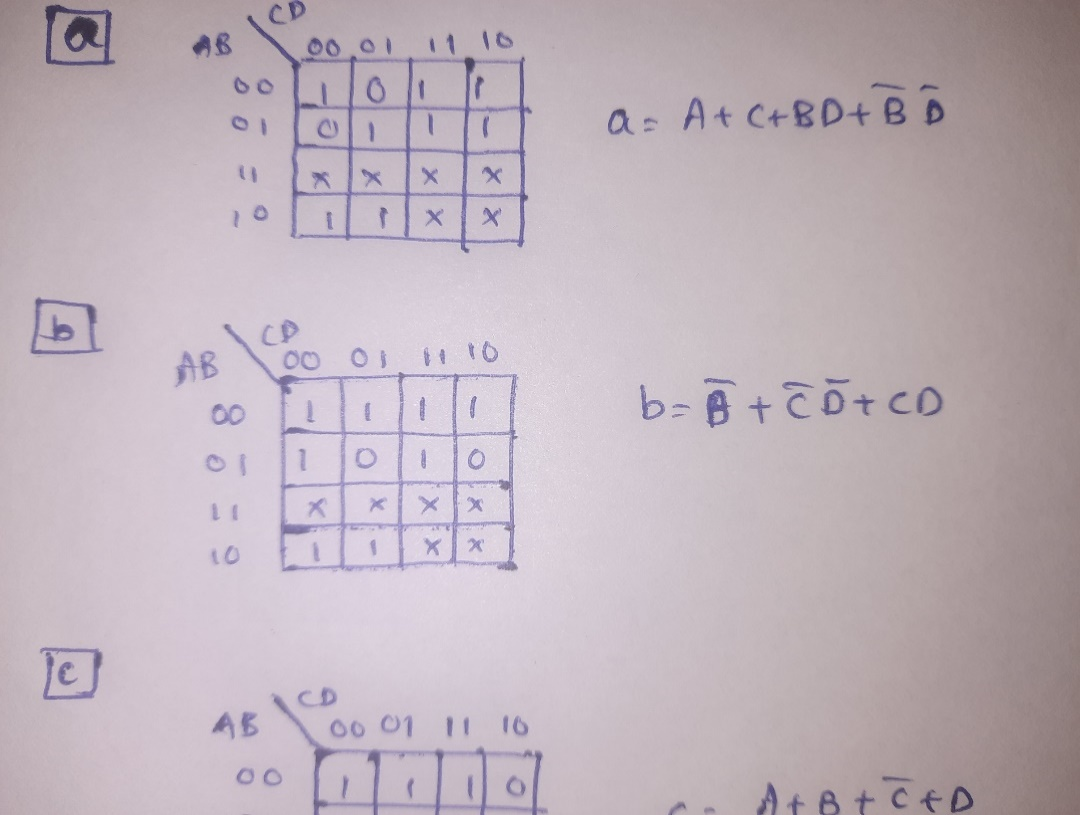 a
CD
AB 00 01 11 10
00 1 0 1 1
01 0 1 1 1
11 x x x x
10 1 1 x x
a = A + C + BD + B̅ D̅
b
CD
AB 00 01 11 10
00 1 1 1 1
01 1 0 1 0
11 x x x x
10 1 1 x x
b = B̅ + C̅ D̅ + CD
c
CD
AB 00 01 11 10
00 1 1 1 0
c = A + B + C̅ + D